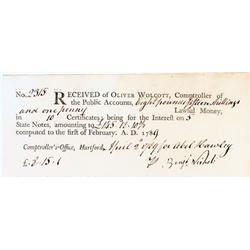 No. 2315 RECEIVED of OLIVER WOLCOTT, Comptroller of
the Public Accounts, eight pounds fifteen shillings
and one penny Lawful Money,
in 10 Certificates, being for the Interest on 5
State Notes, amounting to £145-15-10½
computed to the first of February, A. D. 1789
Comptroller's-Office, Hartford, April 2d 1789 for Abel Hawley
£ 8-15-1